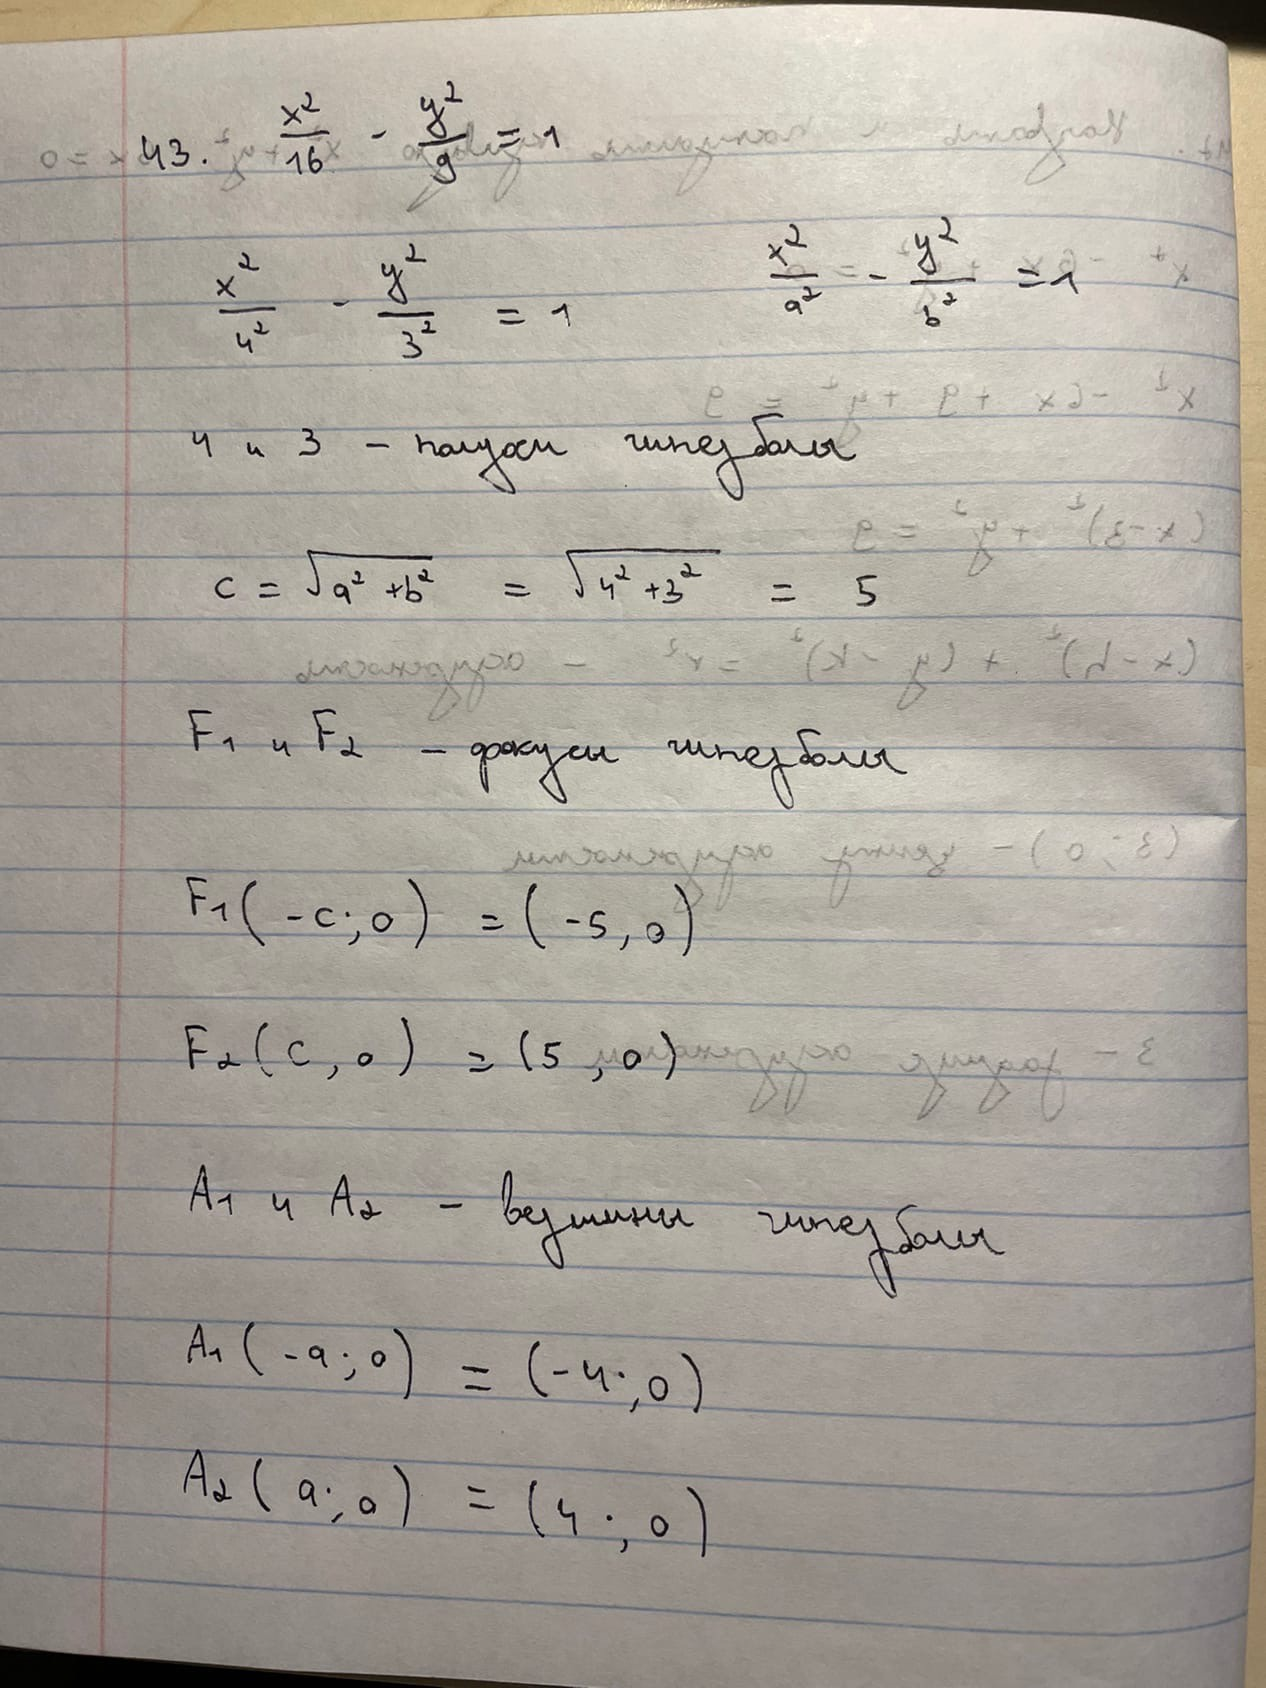 43. x²/16 - y²/9 = 1
x²/4² - y²/3² = 1    x²/a² - y²/b² = 1
4 и 3 - полуоси гиперболы
c = √(a² + b²) = √(4² + 3²) = 5
F₁ и F₂ - фокусы гиперболы
F₁(-c; 0) = (-5, 0)
F₂(c, 0) = (5, 0)
A₁ и A₂ - вершины гиперболы
A₁(-a; 0) = (-4; 0)
A₂(a; 0) = (4; 0)